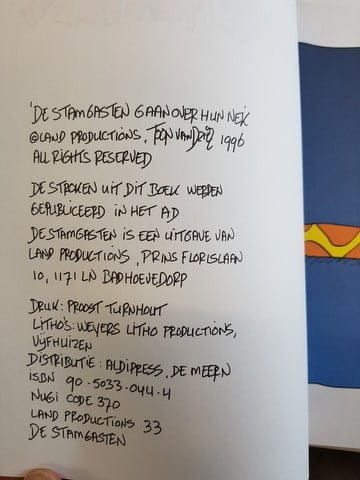 'DE STAMGASTEN GAAN OVER HUN NEK'
©LAND PRODUCTIONS, TOON VAN DRIEL 1996
ALL RIGHTS RESERVED
DE STROKEN UIT DIT BOEK WERDEN
GEPUBLICEERD IN HET AD
DE STAMGASTEN IS EEN UITGAVE VAN
LAND PRODUCTIONS, PRINS FLORISLAAN
10, 1171 LN BADHOEVEDORP
DRUK: PROOST TURNHOUT
LITHO'S: WEYERS LITHO PRODUCTIONS,
VIJFHUIZEN
DISTRIBUTIE: ALDIPRESS, DE MEERN
ISBN 90-5033-044-4
NUGI CODE 370
LAND PRODUCTIONS 33
DE STAMGASTEN